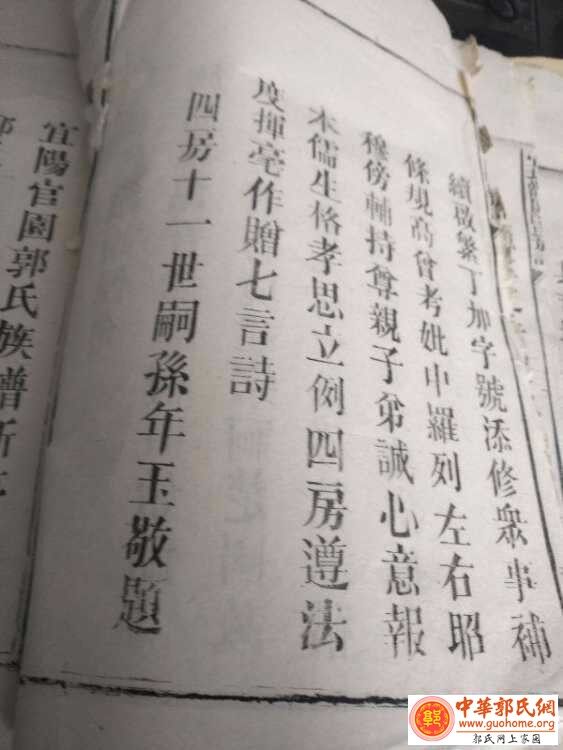 續啟繁丁加字號添修衆事補
條規高曾考妣中羅列左右昭
穆傍輔持尊親子弟誠心意報
木儒生格孝思立例四房遵法
度揮毫作贈七言詩
四房十一世嗣孫年玉敬題
宜陽官園郭氏族譜新
中華郭氏網
www.guohome.org
郭氏网上家园